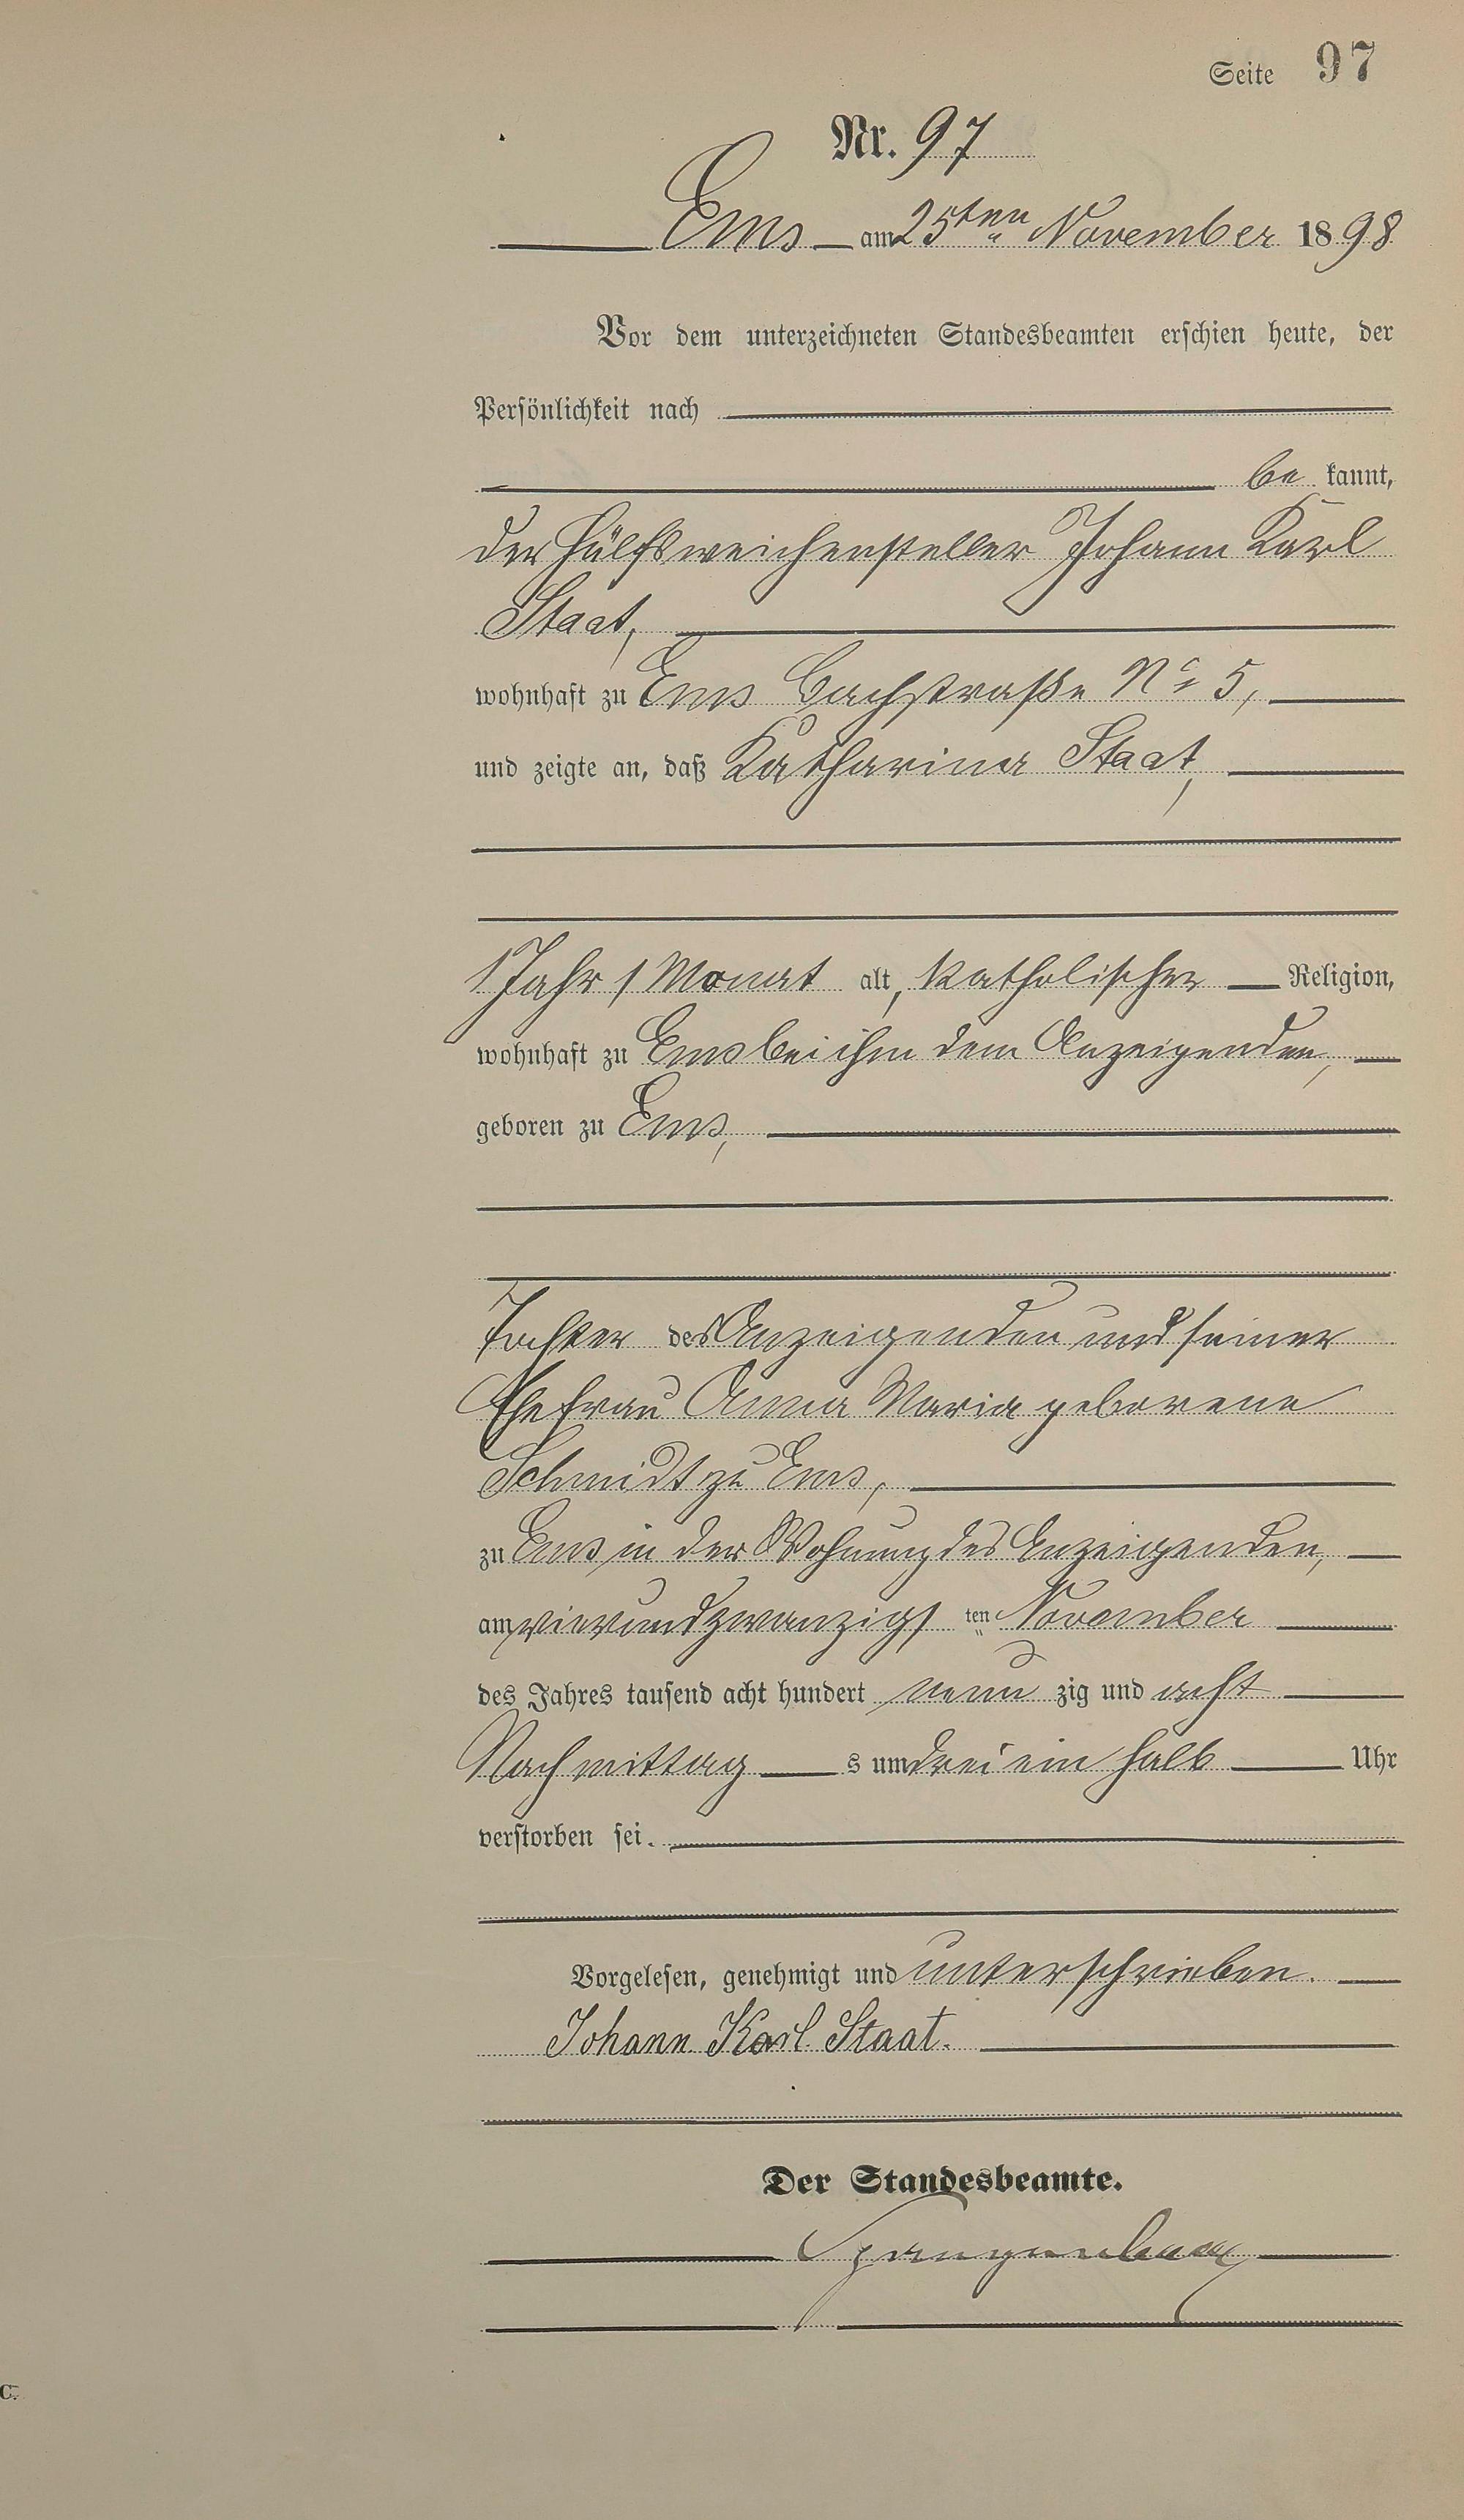 Seite 97
Nr. 97
Ems am 25ten November 1898
Vor dem unterzeichneten Standesbeamten erschien heute, der
Persönlichkeit nach
be kannt,
der Hülfsweichensteller Johann Karl
Staat,
wohnhaft zu Ems Bachstraße No 5,
und zeigte an, daß Katharina Staat,
1 Jahr 1 Monat alt, katholischer Religion,
wohnhaft zu Ems bei ihm dem Anzeigenden,
geboren zu Ems,
Tochter des Anzeigenden und seiner
Ehefrau Anna Maria geborene
Schmidt zu Ems,
zu Ems in der Wohnung des Anzeigenden,
am vierundzwanzigsten November
des Jahres tausend acht hundert neun zig und acht
Nachmittag s um drei ein halb Uhr
verstorben sei.
Vorgelesen, genehmigt und unterschrieben.
Johann Karl Staat.
Der Standesbeamte.
C.